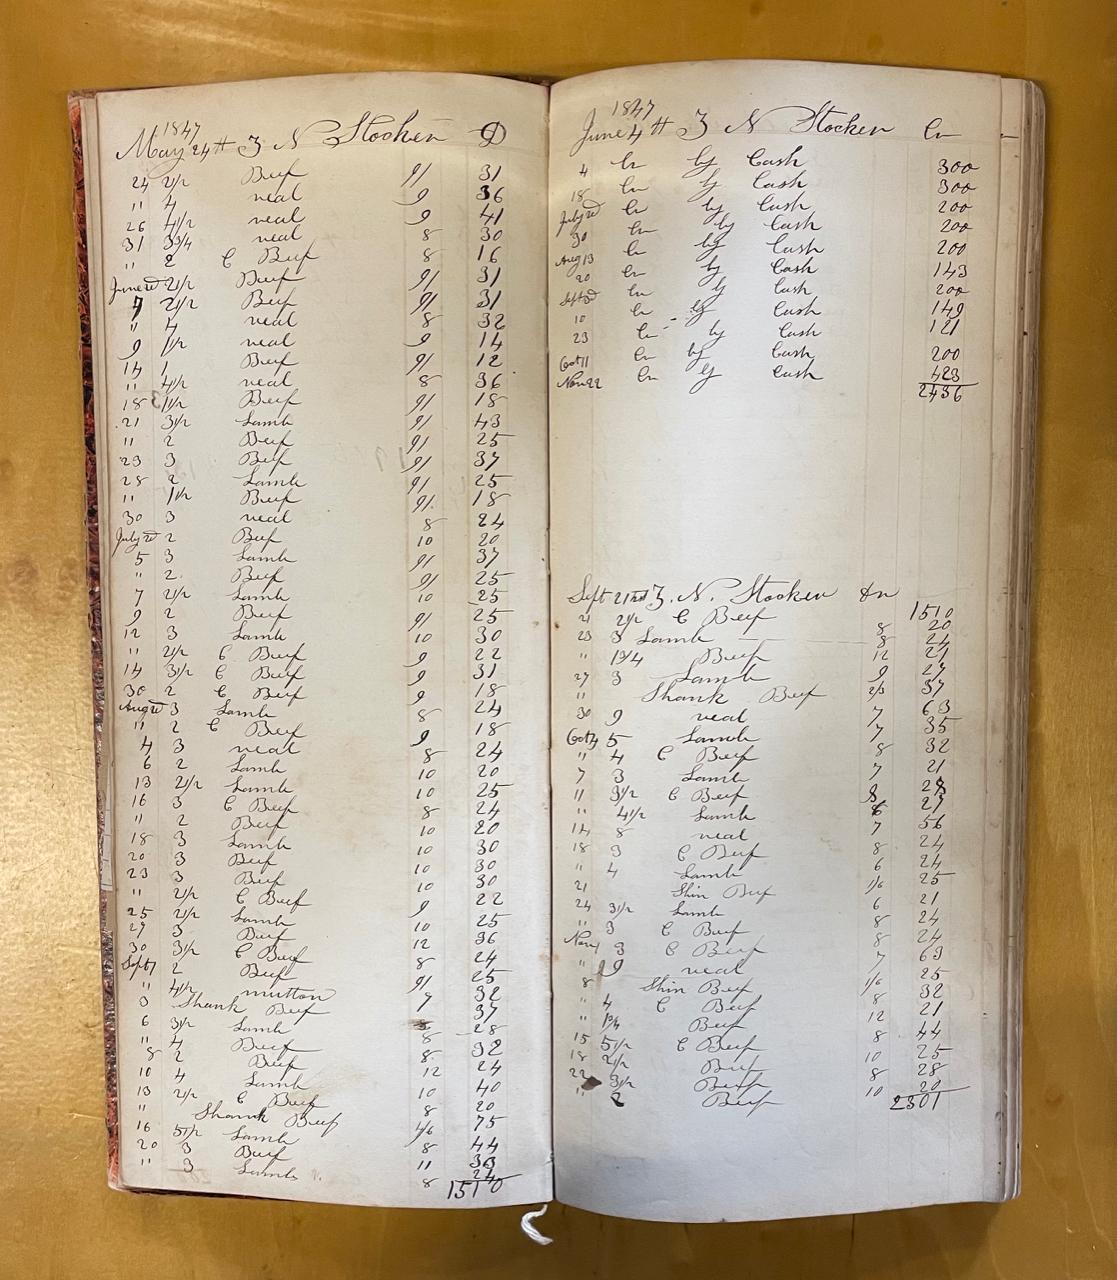 1847
May 24th Z N Stocker D
24 2 1/2 Beef 9 1/2 31
" 4 veal 9 36
26 4 1/2 veal 9 41
31 3 3/4 veal 8 30
" 2 C Beef 8 16
June 2d 2 1/2 Beef 9 1/2 31
7 2 1/2 Beef 9 1/2 31
" 4 veal 8 32
9 1 1/2 veal 9 14
14 1 Beef 9 1/2 12
" 4 1/2 veal 8 36
18 1 1/2 Beef 9 1/2 18
21 3 1/2 Lamb 9 1/2 43
" 2 Beef 9 1/2 25
23 3 Beef 9 1/2 37
28 2 Lamb 9 1/2 25
" 1 1/2 Beef 9 1/2 18
30 3 veal 8 24
July 2d 2 Beef 10 20
5 3 Lamb 9 1/2 37
" 2 Beef 9 1/2 25
7 2 1/2 Lamb 10 25
9 2 Beef 9 1/2 25
12 3 Lamb 10 30
" 2 1/2 C Beef 9 22
14 3 1/2 C Beef 9 31
30 2 C Beef 9 18
Aug 2d 3 Lamb 8 24
" 2 C Beef 9 18
4 3 veal 8 24
6 2 Lamb 10 20
13 2 1/2 Lamb 10 25
16 3 C Beef 8 24
" 2 Beef 10 20
18 3 Lamb 10 30
20 3 Beef 10 30
23 3 Beef 10 30
" 2 1/2 C Beef 9 22
25 2 1/2 Lamb 10 25
27 3 Beef 12 36
30 3 1/2 C Beef 8 24
Sept 1 2 Beef 9 1/2 25
" 4 1/2 mutton 7 32
3 Shank Beef 37
6 3 1/2 Lamb 8 28
" 4 Beef 8 32
8 2 Beef 12 24
10 4 Lamb 10 40
13 2 1/2 C Beef 8 20
" Shank Beef 4/6 75
16 5 1/2 Lamb 8 44
20 3 Beef 11 33
" 3 Lamb 8 24
1510
1847
June 4th Z N Stocker Cr
4 Cr by Cash 300
18 Cr by Cash 300
July 2d Cr by Cash 200
30 Cr by Cash 200
Aug 13 Cr by Cash 200
20 Cr by Cash 143
Sept 3d Cr by Cash 200
10 Cr by Cash 149
23 Cr by Cash 121
Oct 11 Cr by Cash 200
Nov 22 Cr by Cash 423
2436
Sept 21st Z. N. Stocker Dr
1510
21 2 1/2 C Beef 8 20
23 3 Lamb 8 24
" 1 3/4 Beef 12 21
27 3 Lamb 9 27
" Shank Beef 2/3 37
30 9 veal 7 63
Oct 4 5 Lamb 7 35
" 4 C Beef 8 32
7 3 Lamb 7 21
11 3 1/2 C Beef 8 28
" 4 1/2 Lamb 6 27
14 8 veal 7 56
18 3 C Beef 8 24
" 4 Lamb 6 24
21 Shin Beef 1/6 25
24 3 1/2 Lamb 6 21
" 3 C Beef 8 24
Nov 1 3 C Beef 8 24
" 9 veal 7 63
8 Shin Beef 1/6 25
" 4 C Beef 8 32
" 1 3/4 Beef 12 21
15 5 1/2 C Beef 8 44
18 2 1/2 Beef 10 25
22 3 1/2 Beef 8 28
" 2 Beef 10 20
2301